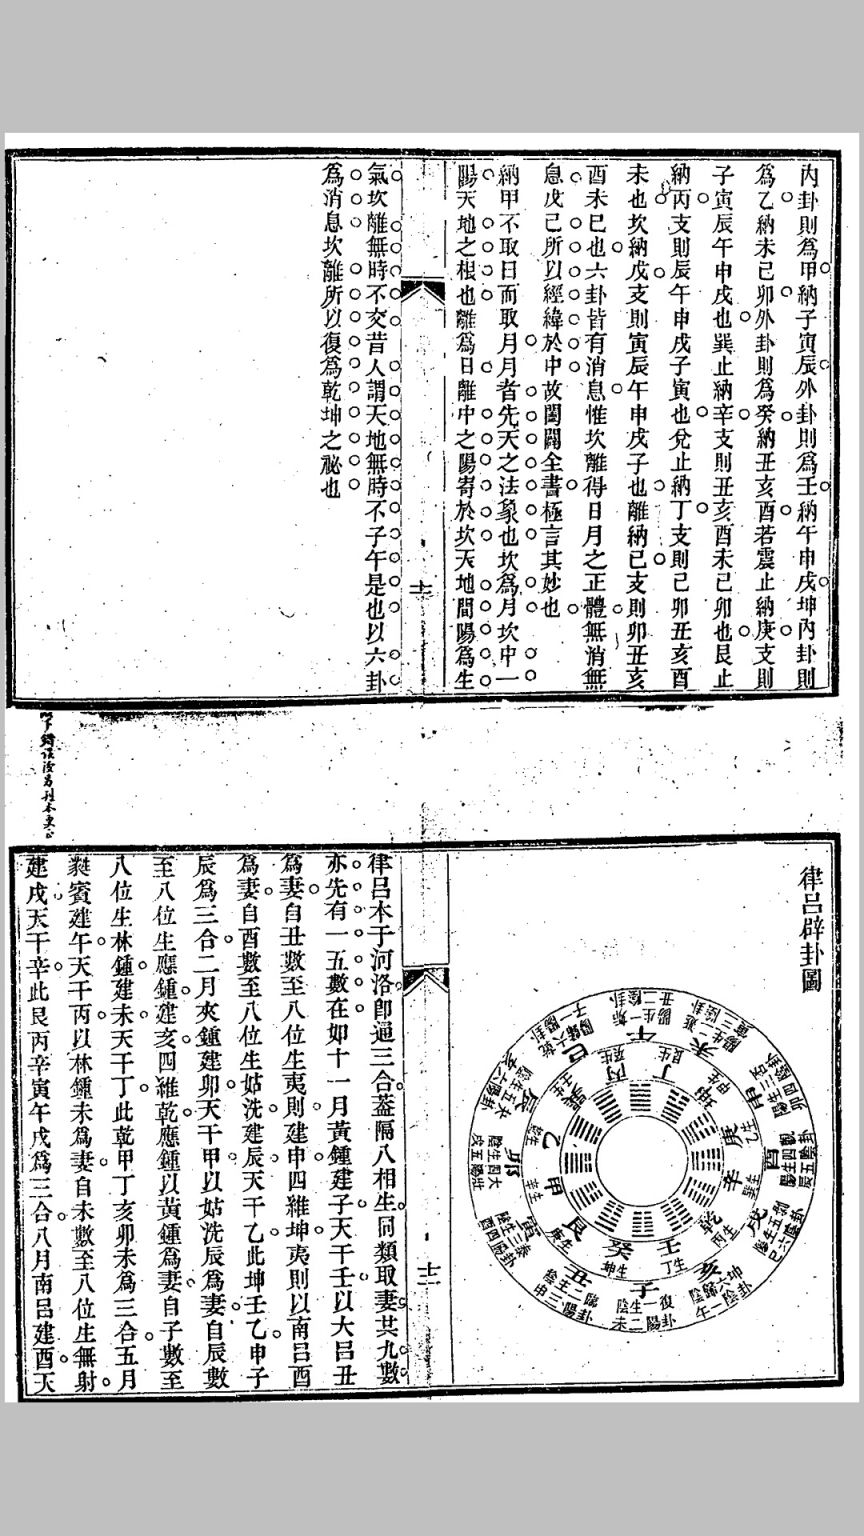 內卦則為甲納子寅辰外卦則為壬納午申戌坤內卦則
為乙納未巳卯外卦則為癸納丑亥酉若震止納庚支則
子寅辰午申戌也巽止納辛支則丑亥酉未巳卯也艮止
納丙支則辰午申戌子寅也兌止納丁支則巳卯丑亥酉
未也坎納戊支則寅辰午申戌子也離納己支則卯丑亥
酉未巳也六卦皆有消息惟坎離得日月之正體無消無
息戊己所以經緯於中故闔闢全書極言其妙也
納甲不取日而取月月者先天之法象也坎為月坎中一
陽天地之根也離為日離中之陽寄於坎天地間陽為生
氣坎離無時不交昔人謂天地無時不子午是也以六卦
為消息坎離所以復為乾坤之祕也
律呂辟卦圖
午
未
申
酉
戌
亥
子
丑
寅
卯
辰
巳
丙
丁
坤
庚
辛
乾
壬
癸
艮
甲
乙
巽
復
一陽卦
律呂本于河洛卽通三合蓋隔八相生同類取妻共九數
亦先有一五數在如十一月黃鍾建子天干壬以大呂丑
為妻自丑數至八位生夷則建申四維坤夷則以南呂酉
為妻自酉數至八位生姑洗建辰天干乙此坤壬乙申子
辰為三合二月夾鍾建卯天干甲以姑洗辰為妻自辰數
至八位生應鍾建亥四維乾應鍾以黃鍾為妻自子數至
八位生林鍾建未天干丁此乾甲丁亥卯未為三合五月
蕤賓建午天干丙以林鍾未為妻自未數至八位生無射
建戌天干辛此艮丙辛寅午戌為三合八月南呂建酉天
十二